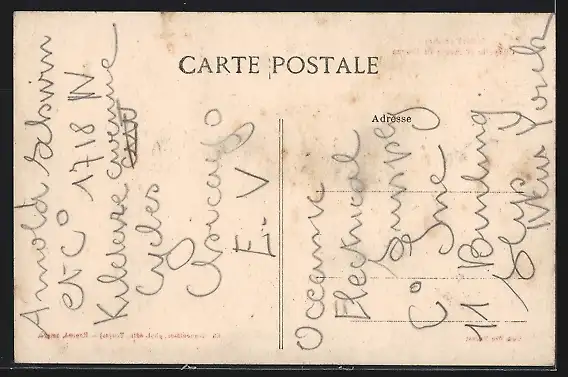 CARTE POSTALE
Adresse
Arnold Schwinn
et C° 1718 N
Kildare avenue
Cycles
Chicago
E-V
Oceanic
Electrical
Supply
C° Inc
11 Bunting
Slip
New York